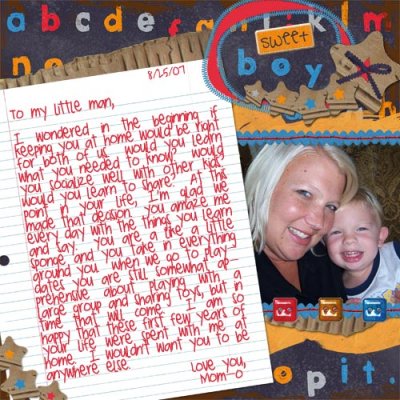 a b c d e f a n i k l m
n o
sweet
boy
8/25/07
To my little man,
I wondered in the beginning if
keeping you at home would be right
for both of us. would you learn
what you needed to know? would
you socialize well with other kids?
would you learn to share? At this
point in your life, I'm glad we
made that decision. you amaze me
every day with the things you learn
and say. you are a the a little
sponge and you take in everything
around you. when we go to play
dates you are still somewhat a-
prehensive about playing with a
large group and sharing toys, but in
time that will come. I am so
happy that these first few years of
your life were spent with me at
home. I wouldn't want you to be
anywhere else.
Love you,
Mom
o p i t .